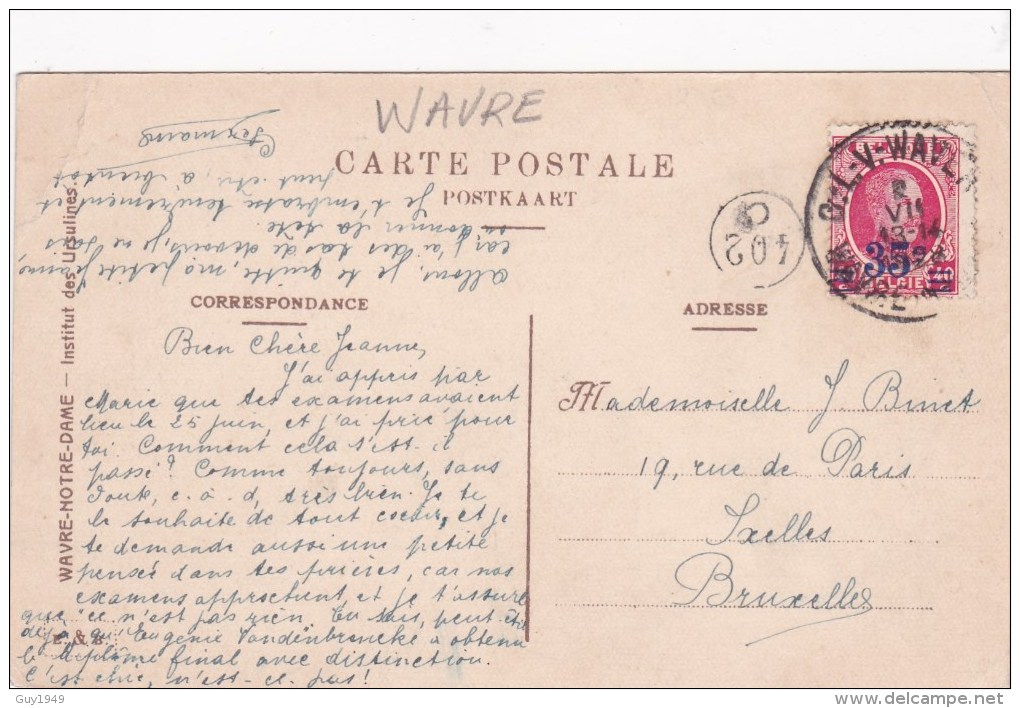 WAVRE
CARTE POSTALE
POSTKAART
CORRESPONDANCE
ADRESSE
WAVRE-NOTRE-DAME — Institut des Ursulines.
Bien Chère Jeanne,
J'ai appris par
Marie que tes examens avaient
lieu le 25 juin, et j'ai prié pour
toi. Comment cela s'est-il
passé? Comme toujours, sans
doute, c.à.d, très bien. Je te
le souhaite de tout coeur, et je
te demande aussi une petite
pensée dans tes prières, car nos
examens approchent, et je t'assure
que ce n'est pas rien. Tu sais, peut être
déjà qu'Eugénie Vandenbroncke a obtenu
le diplôme final avec distinction.
C'est chic, n'est-ce pas!
Allons, je te quitte, ma petite Jeanne,
car j'ai des tas de devoirs, je ne sais
où donner la tête.
Je t'embrasse tendrement
peut être, à bientôt
Germaine
E. & B.
Mademoiselle J Binet
19, rue de Paris
Ixelles
Bruxelles
402
C
O.-L.-V.-WAVER
2
VII
13-14
35c
BELGIE
Guy1949
www.delcampe.net